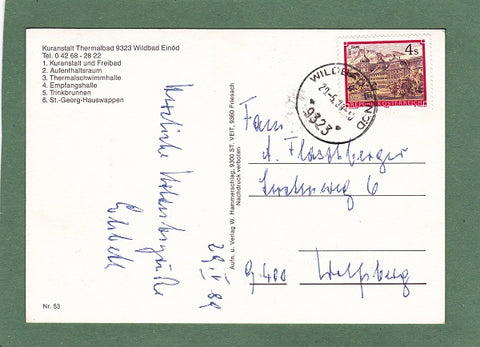 Kuranstalt Thermalbad 9323 Wildbad Einöd
Tel. 0 42 68 - 28 22
1. Kuranstalt und Freibad
2. Aufenthaltsraum
3. Thermalschwimmhalle
4. Empfangshalle
5. Trinkbrunnen
6. St.-Georg-Hauswappen
Herzliche Urlaubsgrüße
29.V 89
Nr. 53
Aufn. u. Verlag W. Hammerschlag, 9300 ST. VEIT, 9360 Friesach
Nachdruck verboten
4 S
REPUBLIK ÖSTERREICH
WILDBAD EINÖD
9323
Fam.
A. Flaschberger
6
9400 Wolfsberg